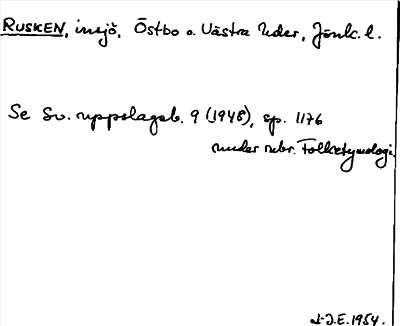 RUSKEN, insjö, Östbo o. Västra hder, Jönk. l.
Se Sv. uppslagsb. 9 (1948), sp. 1176
under rubr. Folketymologi.
J.E. 1954.